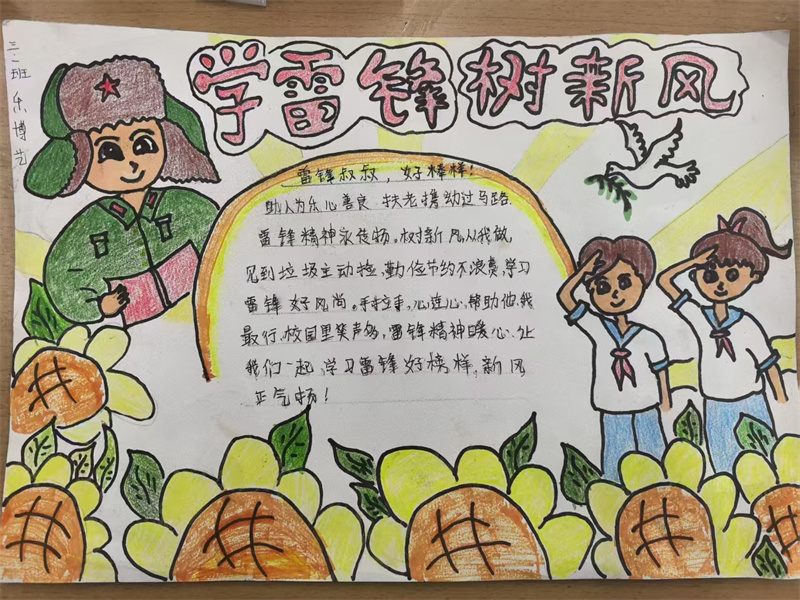 学雷锋树新风
三.一班 乐博艺
雷锋叔叔，好榜样！
助人为乐心善良 扶老携幼过马路.
雷锋精神永传扬。树新风从我做，
见到垃圾主动捡，勤俭节约不浪费，学习
雷锋好风尚。手拉手，心连心，帮助他，我
最行，校园里笑声多，雷锋精神暖心、让
我们一起 学习雷锋好榜样，新风
正气扬！